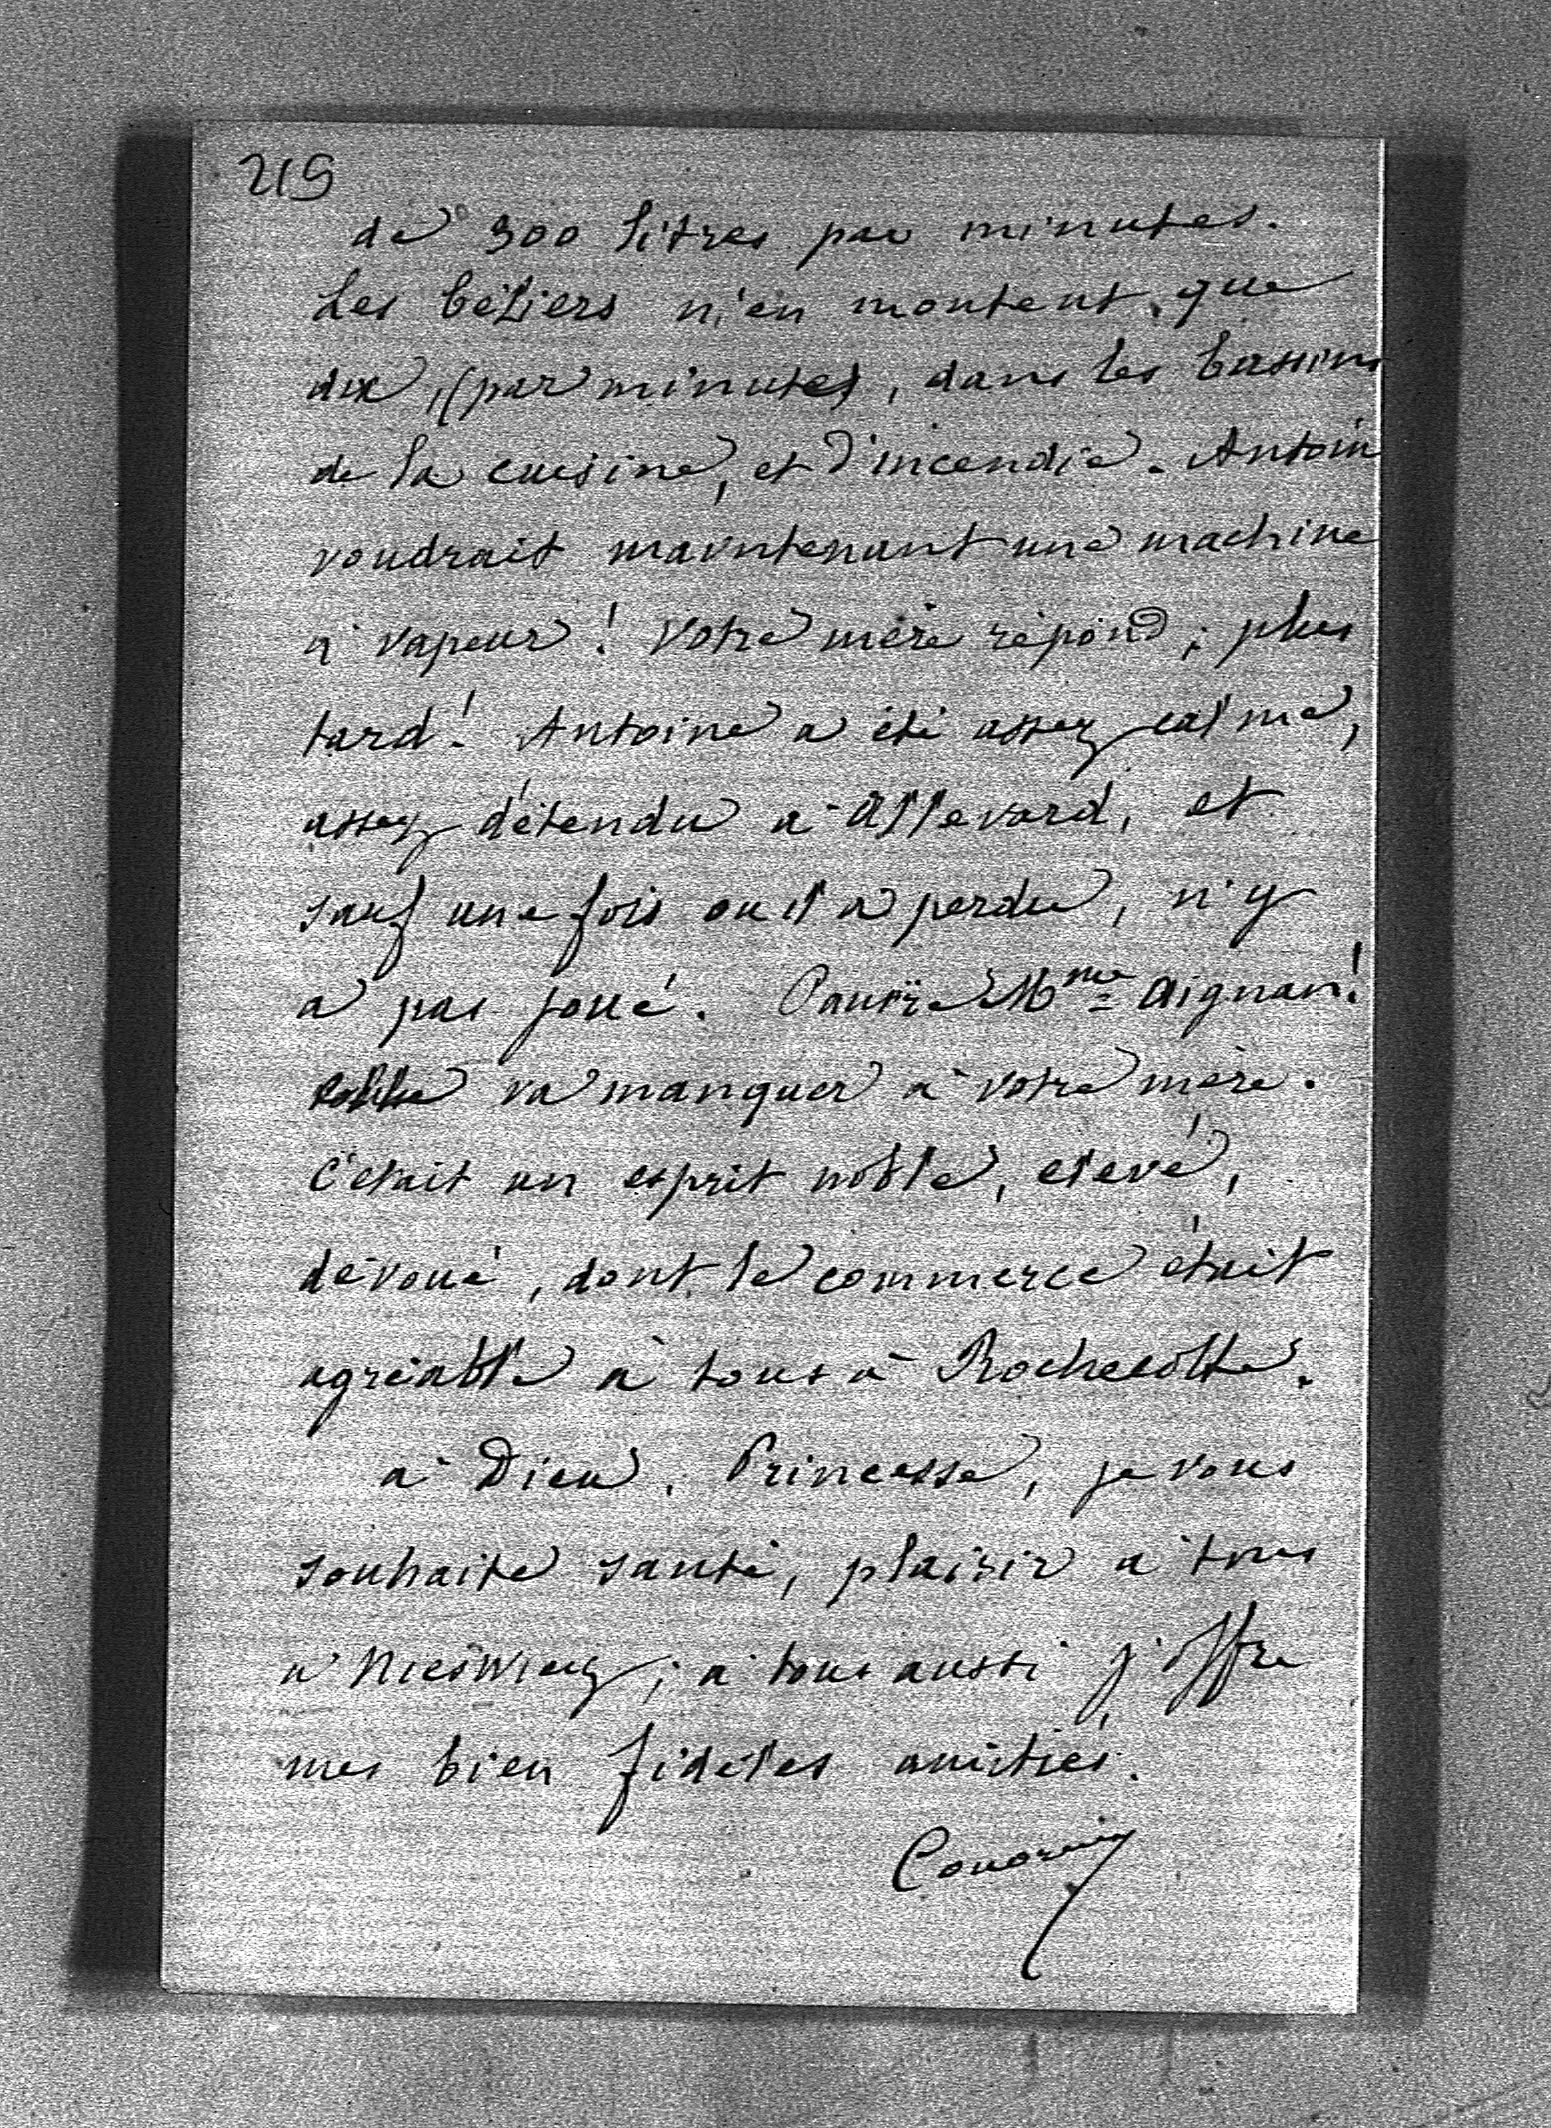 215
de 300 litres par minutes.
Les béliers n'en montent que
dix, (par minutes), dans les bassins
de la cuisine, et d'incendie. Antoin
voudrait maintenant une machine
à vapeur! Votre mère répond; plus
tard! Antoine a été assez calme,
assez détendu à Allevard, et
sauf une fois ou il a perdu, n'y
a pas joué. Pauvre Mme Aignan!
va manquer à votre mère.
C'était un esprit noble, elevé,
dévoué, dont le commerce était
agréable à tous à Rochecotte.
à Dieu. Princesse, je vous
souhaite santé, plaisir à tous
à Nieswiez; à tous aussi j'offre
mes bien fidèles amitiés.